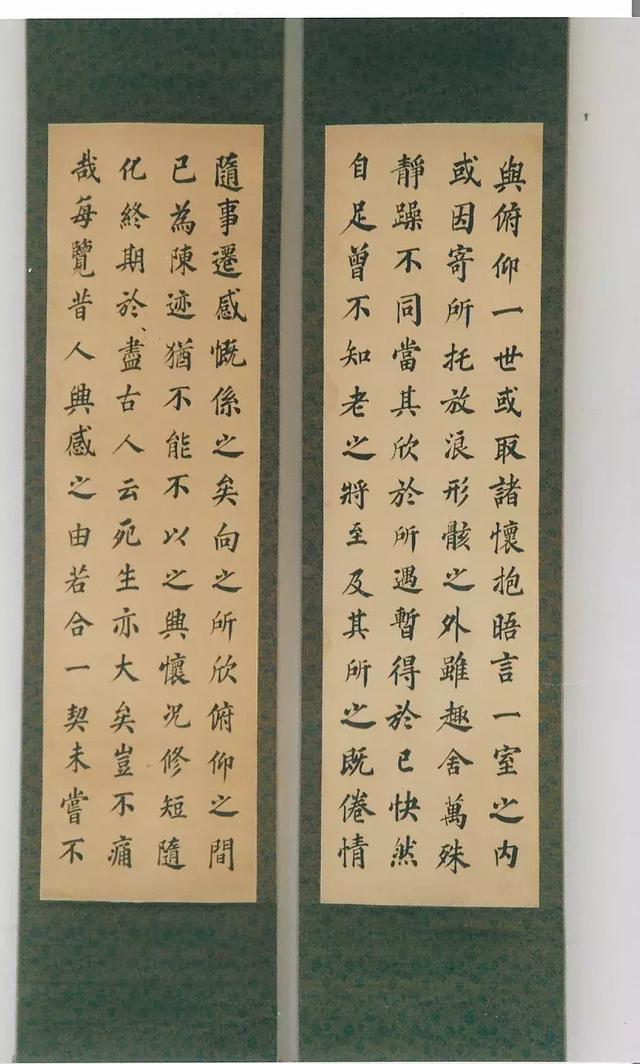 與俯仰一世或取諸懷抱晤言一室之内
或因寄所托放浪形骸之外雖趣舍萬殊
靜躁不同當其欣於所遇暫得於己快然
自足曾不知老之將至及其所之既倦情
隨事遷感慨係之矣向之所欣俯仰之間
已為陳迹猶不能不以之興懷况修短隨
化終期於盡古人云死生亦大矣豈不痛
哉每覽昔人興感之由若合一契未嘗不